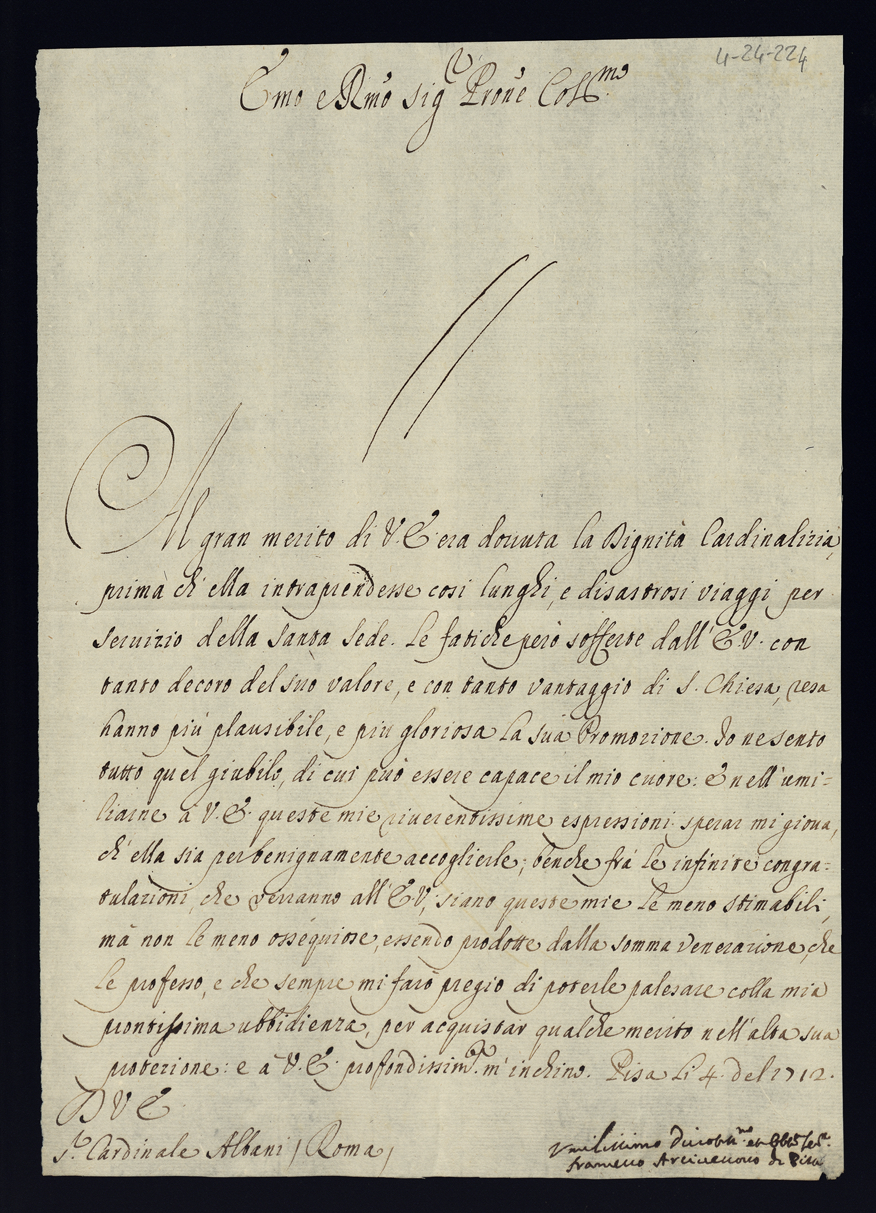 4-24-224
Emo e Rmo Sig.r Prone Coll.mo
Al gran merito di V. E. era dovuta la Dignità Cardinalizia,
prima ch' ella intraprendesse così lunghi, e disastrosi viaggi per
servizio della Santa Sede. Le fatiche però sofferte dall' E. V. con
tanto decoro del suo valore, e con tanto vantaggio di S. Chiesa, resa
hanno più plausibile, e più gloriosa la sua Promozione. Io ne sento
tutto quel giubilo, di cui può essere capace il mio cuore: E nell' umi=
liarne à V. E. queste mie riverentissime espressioni sperar mi giova,
ch' ella sia per benignamente accoglierle; benche frà le infinite congra=
tulazioni, che verranno all' E V, siano queste mie le meno stimabili,
mà non le meno ossequiose, essendo prodotte dalla somma venerazione, che
le professo, e che sempre mi farò pregio di poterle palesare colla mia
prontissima ubbidienza, per acquistar qualche merito nell' alta sua
protezione: e à V. E. profondissim.te m' inchino. Pisa li 4. del 1712.
D V E
S.r Cardinale Albani / Roma /
Umilissimo Divotis.mo et Obb. Ser.e
Francesco Arcivescovo di Pisa